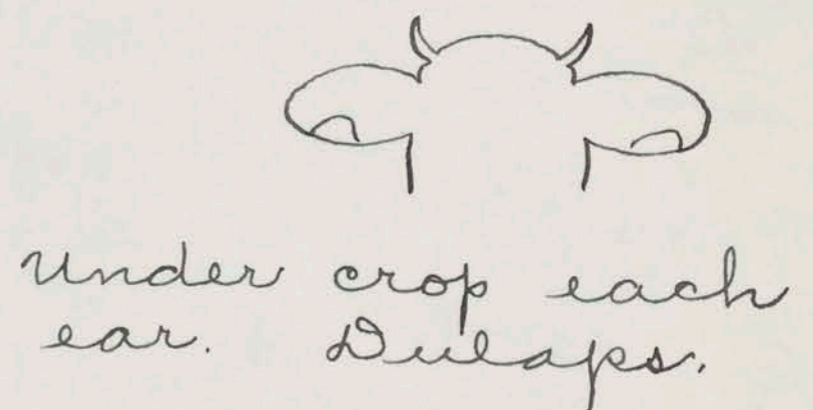 Under crop each
ear. Dulaps.